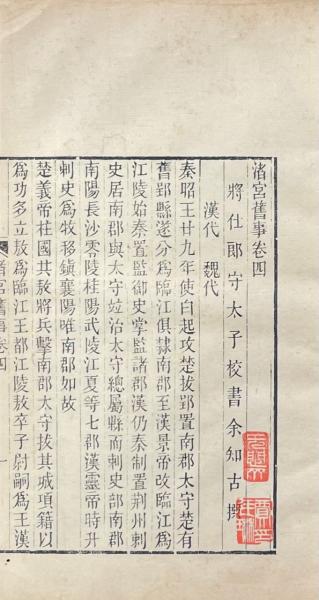 渚宮舊事卷四
將仕郎守太子校書余知古撰
漢代 魏代
秦昭王廿九年使白起攻楚拔郢置南郡太守楚有
舊郢縣遂分為臨江俱隷南郡至漢景帝改臨江為
江陵始秦置監御史掌監諸郡漢仍秦制置荆州刺
史居南郡與太守竝治太守總屬縣而刺史部南郡
南陽長沙零陵桂陽武陵江夏等七郡漢靈帝時升
刺史為牧移鎮襄陽唯南郡如故
楚義帝柱國共敖將兵擊南郡太守拔其城項籍以
為功多立敖為臨江王都江陵敖卒子尉嗣為王漢
渚宮舊事卷四
一